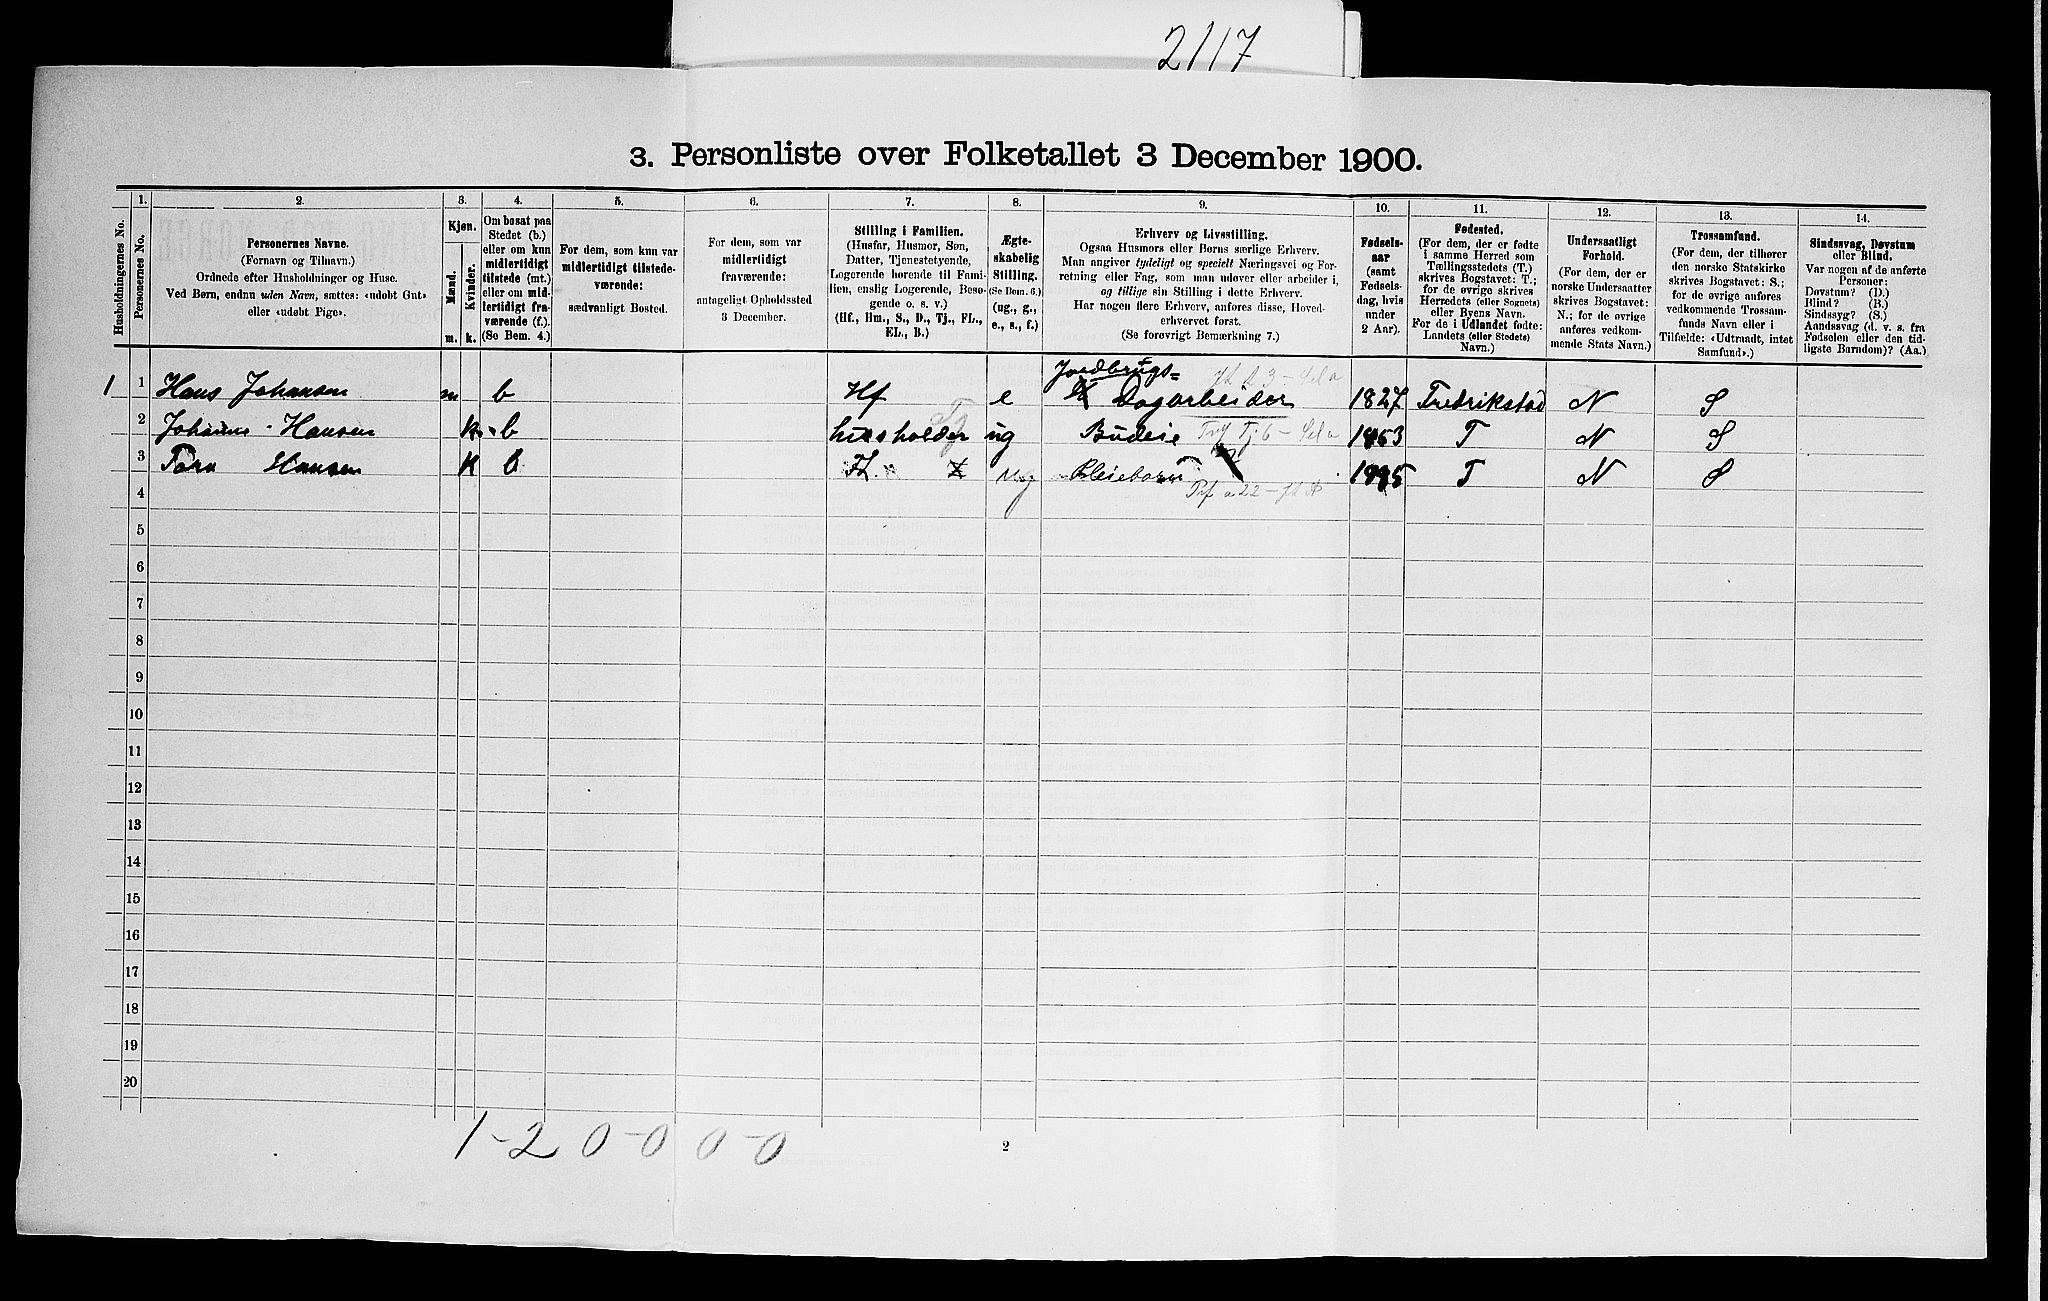 2117
3. Personliste over Folketallet 3 December 1900.
Husholdningernes No.
1.
Personernes No.
2.
Personernes Navne.
(Fornavn og Tilnavn.)
Ordnede efter Husholdninger og Huse.
Ved Børn, endnu uden Navn, sættes: «udøbt Gut»
eller «udøbt Pige».
3.
Kjøn.
Mænd.
Kvinder.
m. k.
4.
Om bosat paa
Stedet (b.)
eller om kun
midlertidigt
tilstede (mt.)
eller om mid-
lertidigt fra-
værende (f.).
(Se Bem. 4.)
5.
For dem, som kun var
midlertidigt tilstede-
værende:
sædvanligt Bosted.
6.
For dem, som var
midlertidigt
fraværende:
antageligt Opholdssted
3 December.
7.
Stilling i Familien.
(Husfar, Husmor, Søn,
Datter, Tjenestetyende,
Logerende hørende til Fami-
lien, enslig Logerende, Besø-
gende o. s. v.)
(Hf., Hm., S., D., Tj., FL.,
EL., B.)
8.
Ægte-
skabelig
Stilling.
(Se Bem. 6.)
(ug., g.,
e., s., f.)
9.
Erhverv og Livsstilling.
Ogsaa Husmors eller Børns særlige Erhverv.
Man angiver tydeligt og specielt Næringsvei og For-
retning eller Fag, som man udøver eller arbeider i,
og tillige sin Stilling i dette Erhverv.
Har nogen flere Erhverv, anføres disse, Hoved-
erhvervet først.
(Se forøvrigt Bemærkning 7.)
10.
Fødsels-
aar
(samt
Fødsels-
dag, hvis
under
2 Aar).
11.
Fødested.
(For dem, der er fødte
i samme Herred som
Tællingsstedets (T.)
skrives Bogstavet: T.;
for de øvrige skrives
Herredets (eller Sognets)
eller Byens Navn.
For de i Udlandet fødte:
Landets (eller Stedets)
Navn.)
12.
Undersaatligt
Forhold.
(For dem, der er
norske Undersaatter
skrives Bogstavet:
N.; for de øvrige
anføres vedkom-
mende Stats Navn.)
13.
Trossamfund.
(For dem, der tilhører
den norske Statskirke
skrives Bogstavet: S.;
for de øvrige anføres
vedkommende Trossam-
funds Navn eller i
Tilfælde: «Udtraadt, intet
Samfund».)
14.
Sindssvag, Døvstum
eller Blind.
Var nogen af de anførte
Personer:
Døvstum? (D.)
Blind? (B.)
Sindssyg? (S.)
Aandssvag (d. v. s. fra
Fødselen eller den tid-
ligste Barndom)? (Aa.)
Jordbrugs=
1 1 Hans Johansen m b Hf e Dagarbeider 1827 Fredrikstad N S
2 Johanne Hansen k b husholder ug Budeie 1863 T N S
3 Tora Hansen k b ug Pleiebarn T N S
4
5
6
7
8
9
10
11
12
13
14
15
16
17
18
19
20
1-2 0-0 0-0
2